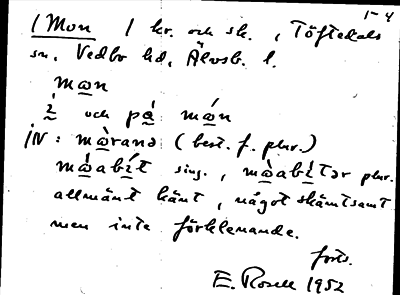 1-4
/Mon / kr. och sk., Töftedals
sn, Vedbo hd, Älvsb. l.
mωn
i̊ och på mώn
IN: mὼrana (best. f. plur.)
mὼabít sing., mὼabítər plur.
allmänt känt, något skämtsamt
men inte förklenande.
forts.
E. Rosell 1952